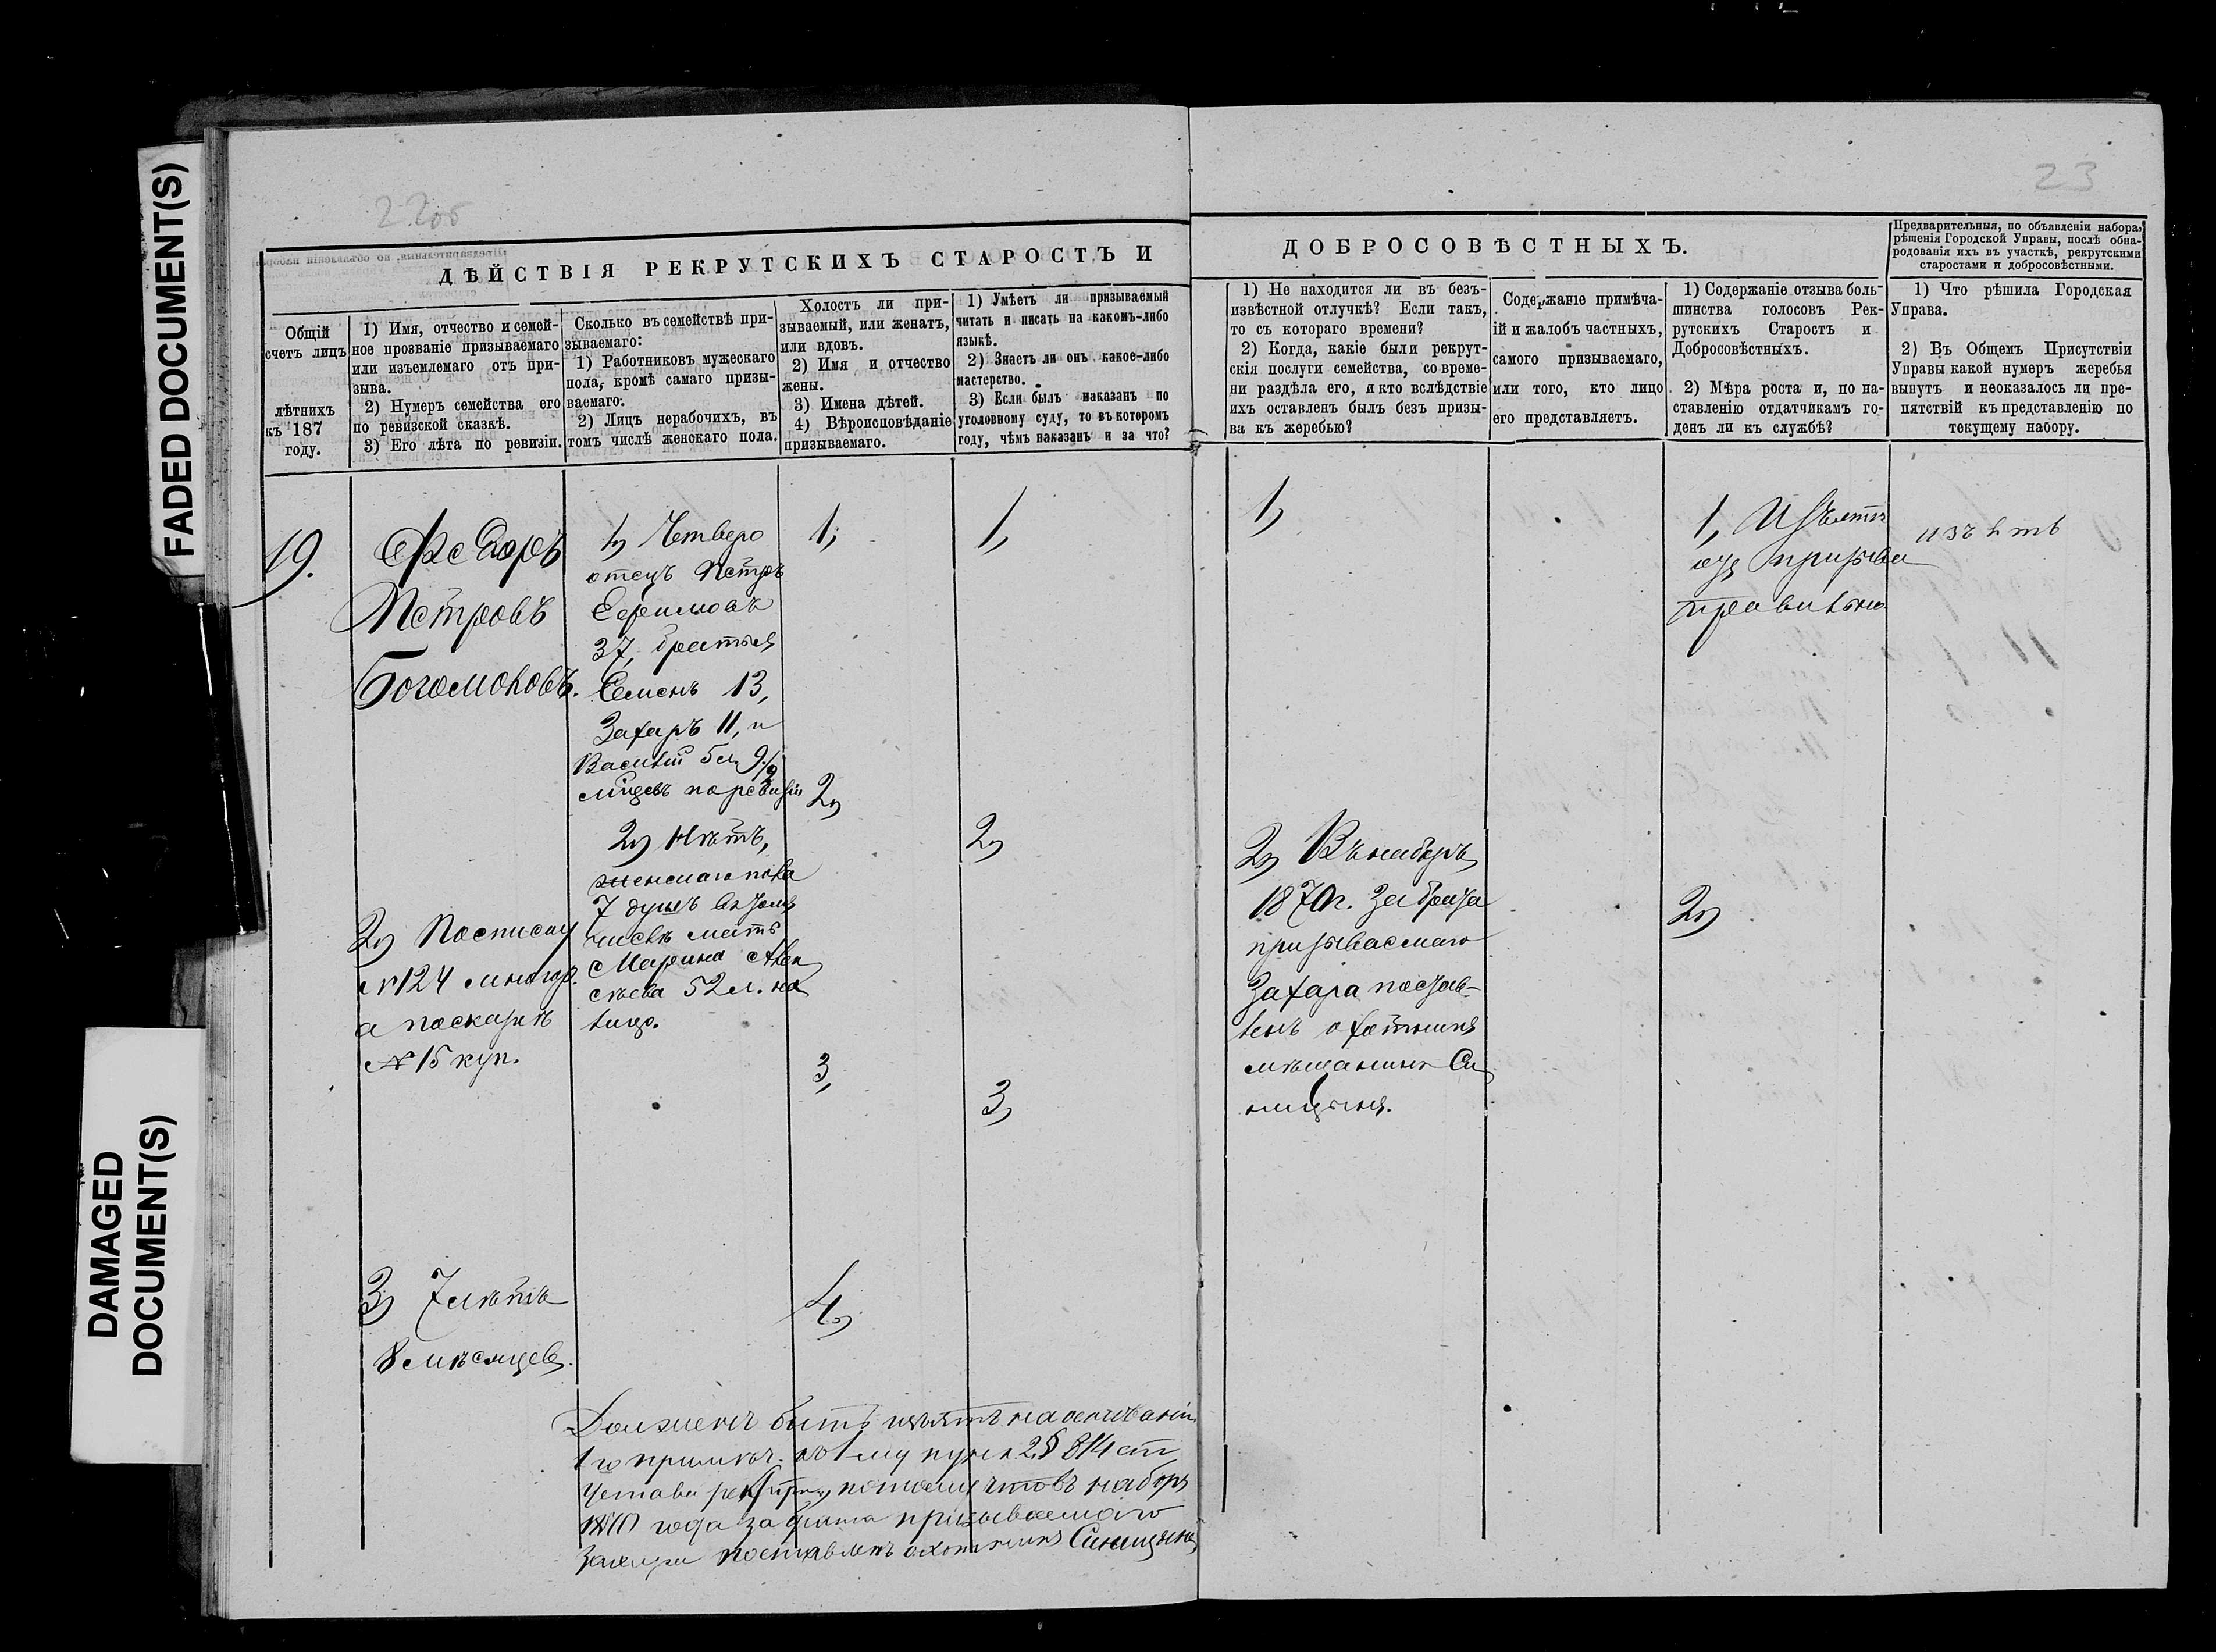 FADED DOCUMENT(S)
DAMAGED
DOCUMENT(S)
22об
23
ДѢЙСТВІЯ РЕКРУТСКИХЪ СТАРОСТЪ И
ДОБРОСОВѢСТНЫХЪ.
Предварительныя, по объявленіи набора,
рѣшенія Городской Управы, послѣ обна-
родованія ихъ въ участкѣ, рекрутскими
старостами и добросовѣстными.
Общій
счетъ лицъ
лѣтнихъ
къ 187
году.
1) Имя, отчество и семей-
ное прозваніе призываемаго
или изъемлемаго отъ при-
зыва.
2) Нумеръ семейства его
по ревизской сказкѣ.
3) Его лѣта по ревизіи.
Сколько въ семействѣ при-
зываемаго:
1) Работниковъ мужескаго
пола, кромѣ самаго призы-
ваемаго.
2) Лицъ нерабочихъ, въ
томъ числѣ женскаго пола.
Холостъ ли при-
зываемый, или женатъ,
или вдовъ.
2) Имя и отчество
жены.
3) Имена дѣтей.
4) Вѣроисповѣданіе
призываемаго.
1) Умѣетъ ли призываемый
читать и писать на какомъ-либо
языкѣ.
2) Знаетъ ли онъ какое-либо
мастерство.
3) Если былъ наказанъ по
уголовному суду, то въ которомъ
году, чѣмъ наказанъ и за что?
1) Не находится ли въ безъ-
извѣстной отлучкѣ? Если такъ,
то съ котораго времени?
2) Когда, какіе были рекрут-
скія послуги семейства, со време-
ни раздѣла его, и кто вслѣдствіе
ихъ оставленъ былъ безъ призы-
ва къ жеребью?
Содержаніе примѣча-
ій и жалобъ частныхъ,
самого призываемаго,
или того, кто лицо
его представляетъ.
1) Содержаніе отзыва боль-
шинства голосовъ Рек-
рутскихъ Старостъ и
Добросовѣстныхъ.
2) Мѣра роста и, по на-
ставленію отдатчикамъ го-
денъ ли къ службѣ?
1) Что рѣшила Городская
Управа.
2) Въ Общемъ Присутствіи
Управы какой нумеръ жеребья
вынутъ и неоказалось ли пре-
пятствій къ представленію по
текущему набору.
19.
Федоръ
Петровъ
Богомоловъ.
2) По списку
№ 124
а по сказкѣ
№ 15 куп.
3) 7 лѣтъ
8 мѣсяцевъ.
1) Четверо
отецъ Петръ
Ефимовъ
37, братья
Семенъ 13,
Захаръ 11, и
Василій 9/2
по ревизіи
2) Нѣтъ,
женскаго пола
7 душъ въ томъ
числѣ мать
Марина Алек
сѣева 52 л. на
лицо.
1,
2)
3,
4)
1,
2)
3)
1)
2) Въ наборъ
1870 г. за брата
призываемаго
Захара постав-
ленъ охотникъ
мѣщанинъ Си
ницынъ.
1, Изъятъ
отъ призыва
правильно.
2)
изъятъ
Долженъ быть изъятъ на основаніи
1го примѣч. къ 1му пунк. 2 § 814 ст
Устава рекрутск, потому что въ наборъ
1870 года за брата призываемаго
Захара поставленъ охотникъ Синицынъ